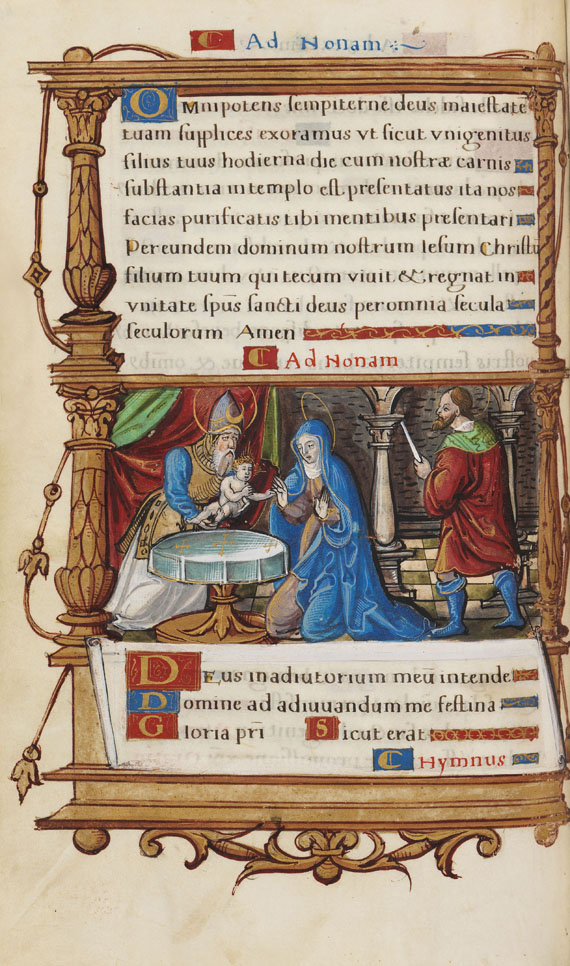 C Ad Nonam
OMnipotens sempiterne deus, maiestate
tuam supplices exoramus vt sicut vnigenitus
filius tuus hodierna die cum nostræ carnis
substantia in templo est presentatus ita nos
facias purificatis tibi mentibus presentari
Per eundem dominum nostrum Iesum Christū
filium tuum qui tecum viuit & regnat in
vnitate spūs sancti deus per omnia secula
seculorum Amen
C Ad Nonam
DEus in adiutorium meū intende
Domine ad adiuuandum me festina
Gloria pr̄i Sicut erat
C Hymnus